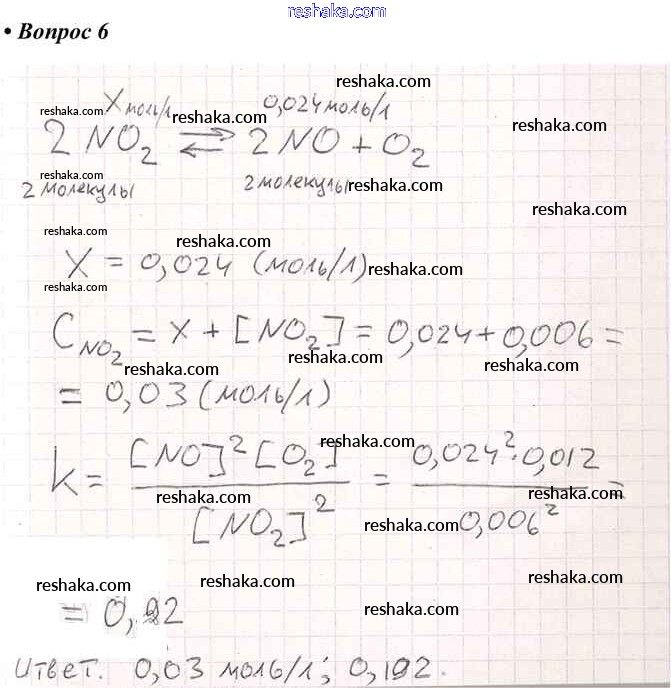 reshaka.com
• Вопрос 6
reshaka.com
reshaka.com X моль/л reshaka.com 0,024 моль/л reshaka.com
2 NO₂ ⇌ 2 NO + O₂
2 молекулы 2 молекулы reshaka.com
reshaka.com
reshaka.com reshaka.com
X = 0,024 (моль/л) reshaka.com
reshaka.com
C NO₂ = X + [NO₂] = 0,024 + 0,006 =
reshaka.com reshaka.com reshaka.com
= 0,03 (моль/л)
reshaka.com
k = [NO]² [O₂] / [NO₂]² = 0,024² · 0,012 / 0,006² =
reshaka.com reshaka.com
reshaka.com
reshaka.com reshaka.com reshaka.com
reshaka.com
= 0, 22
Ответ. 0,03 моль/л; 0,192.